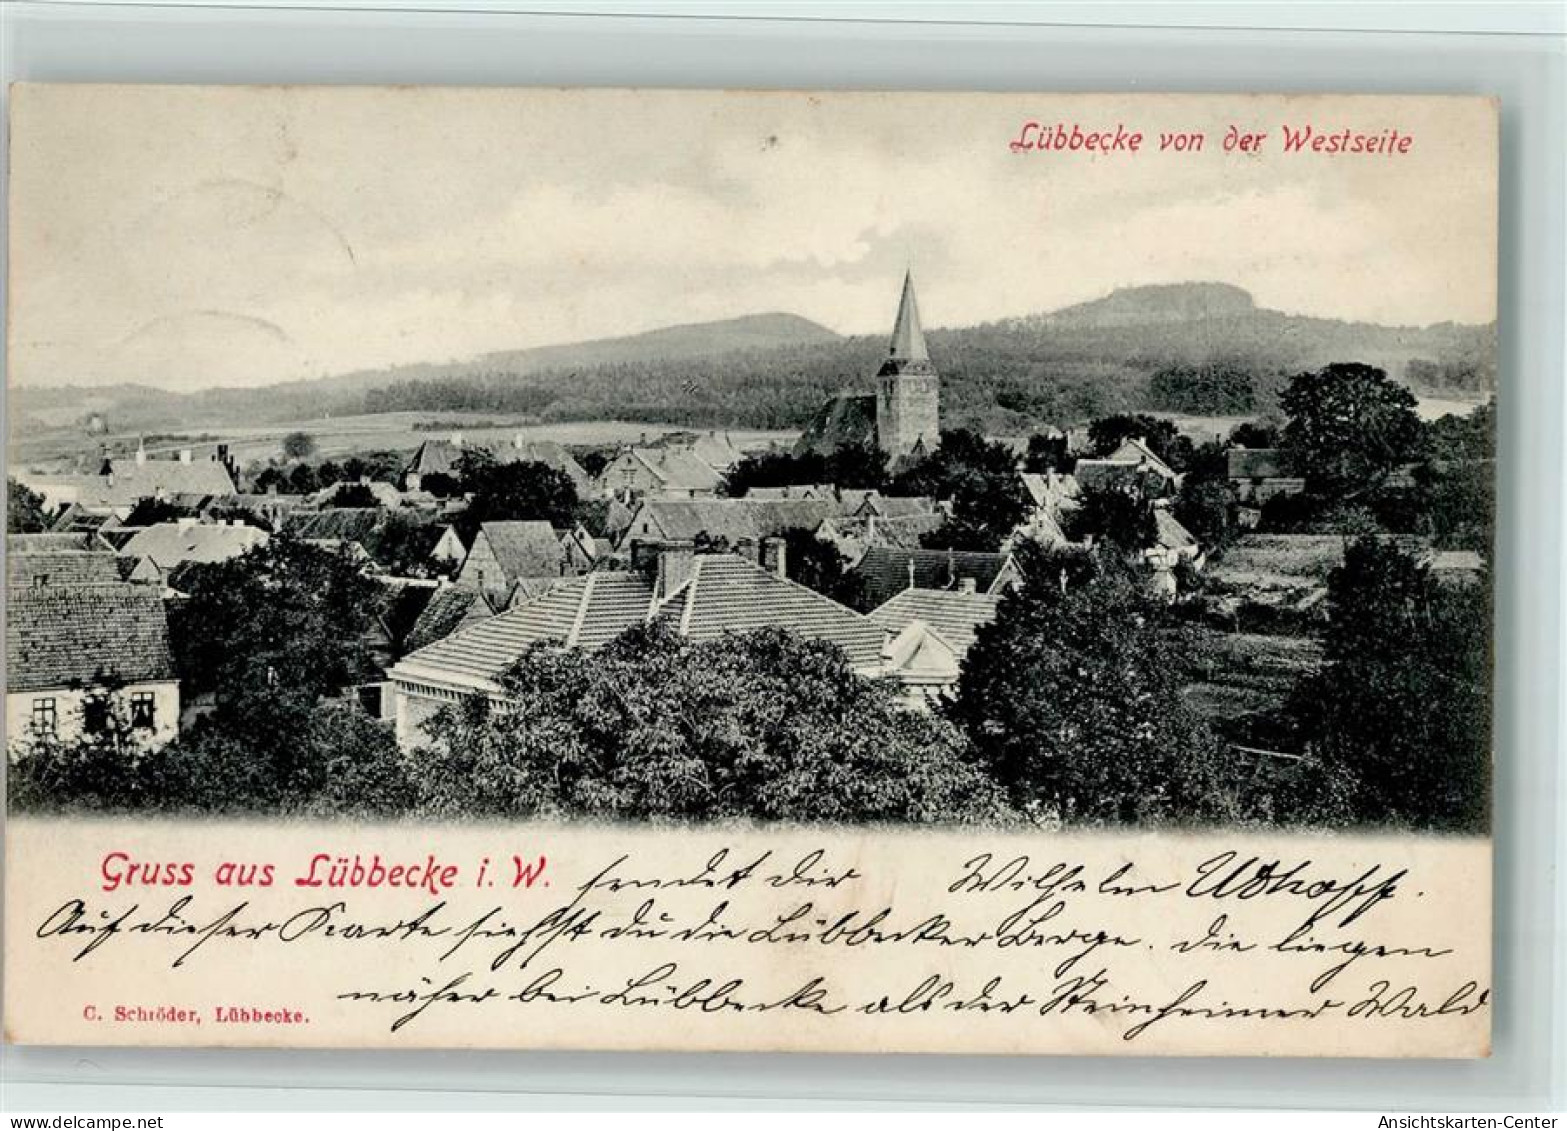 Lübbecke von der Westseite
Gruss aus Lübbecke i. W. sendet dir Wilhelm
Auf dieser Karte siehst du die Lübbecker Berge. die liegen
näher bei Lübbecke als der Steinheimer Wald
C. Schröder, Lübbecke.
www.delcampe.net
Ansichtskarten-Center